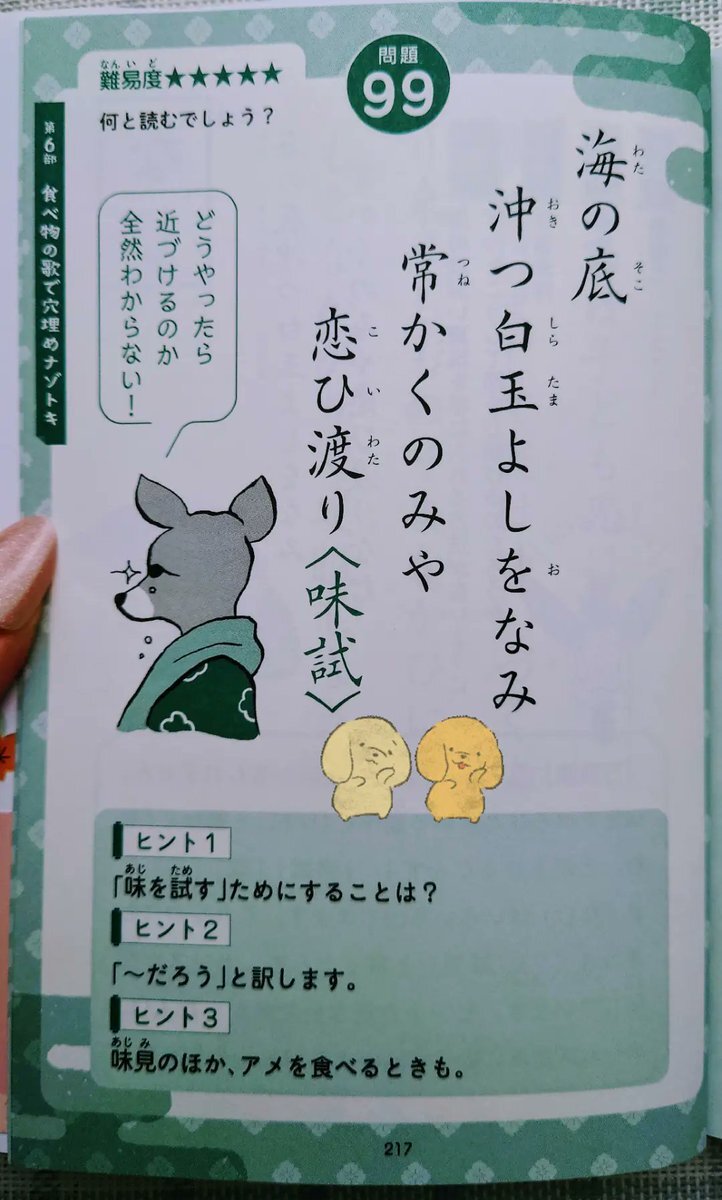 問題
99
難易度★★★★★
なんいど
何と読むでしょう？
第6部 食べ物の歌で穴埋めナゾトキ
海の底
わた そこ
沖つ白玉よしをなみ
おき しら たま お
常かくのみや
つね
恋ひ渡り〈味試〉
こ い わた
どうやったら
近づけるのか
全然わからない！
ヒント1
あじ ため
「味を試す」ためにすることは？
ヒント2
「〜だろう」と訳します。
ヒント3
あじみ
味見のほか、アメを食べるときも。
217